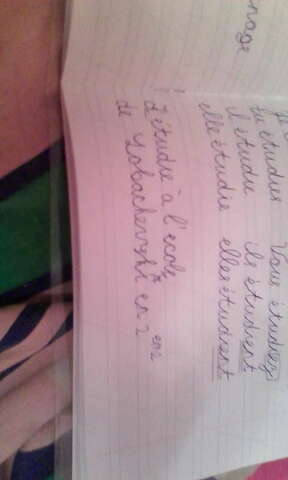 nage
tu étudies Vous étudiez
il étudie ils étudient
elle étudie elles étudient
J étudie à l'école
de Lobachevski en 2